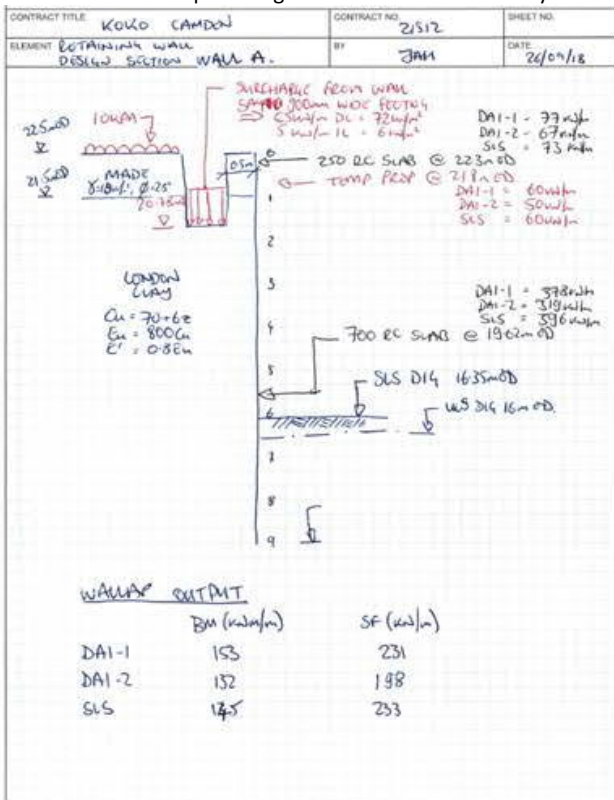 CONTRACT TITLE KOKO CAMDEN
CONTRACT NO. 21512
SHEET NO.
ELEMENT RETAINING WALL
DESIGN SECTION WALL A.
BY JAM
DATE 26/09/18
SURCHARGE FROM WALL
900mm WIDE FOOTING
⇒ 65kN/m DL = 72kN/m²
5 kN/m LL = 6kN/m²
DA1-1 - 77kN/m
DA1-2 - 67kN/m
SLS = 73kN/m
22.5mOD
10kPa
0.5m
0
250 RC SLAB @ 22.3mOD
TEMP PROP @ 21.8mOD
DA1-1 = 60kN/m
DA1-2 = 50kN/m
SLS = 60kN/m
21.5mOD
MADE
1
2
3
4
5
6
7
8
9
LONDON
CLAY
Cu = 70+6z
Eu = 800Cu
E' = 0.8Eu
DA1-1 = 378kN/m
DA1-2 = 319kN/m
SLS = 396kN/m
700 RC SLAB @ 19.62mOD
SLS DIG 16.35mOD
ULS DIG 16mOD.
WALLAP OUTPUT
BM (kNm/m) SF (kN/m)
DA1-1 153 231
DA1-2 132 198
SLS 233